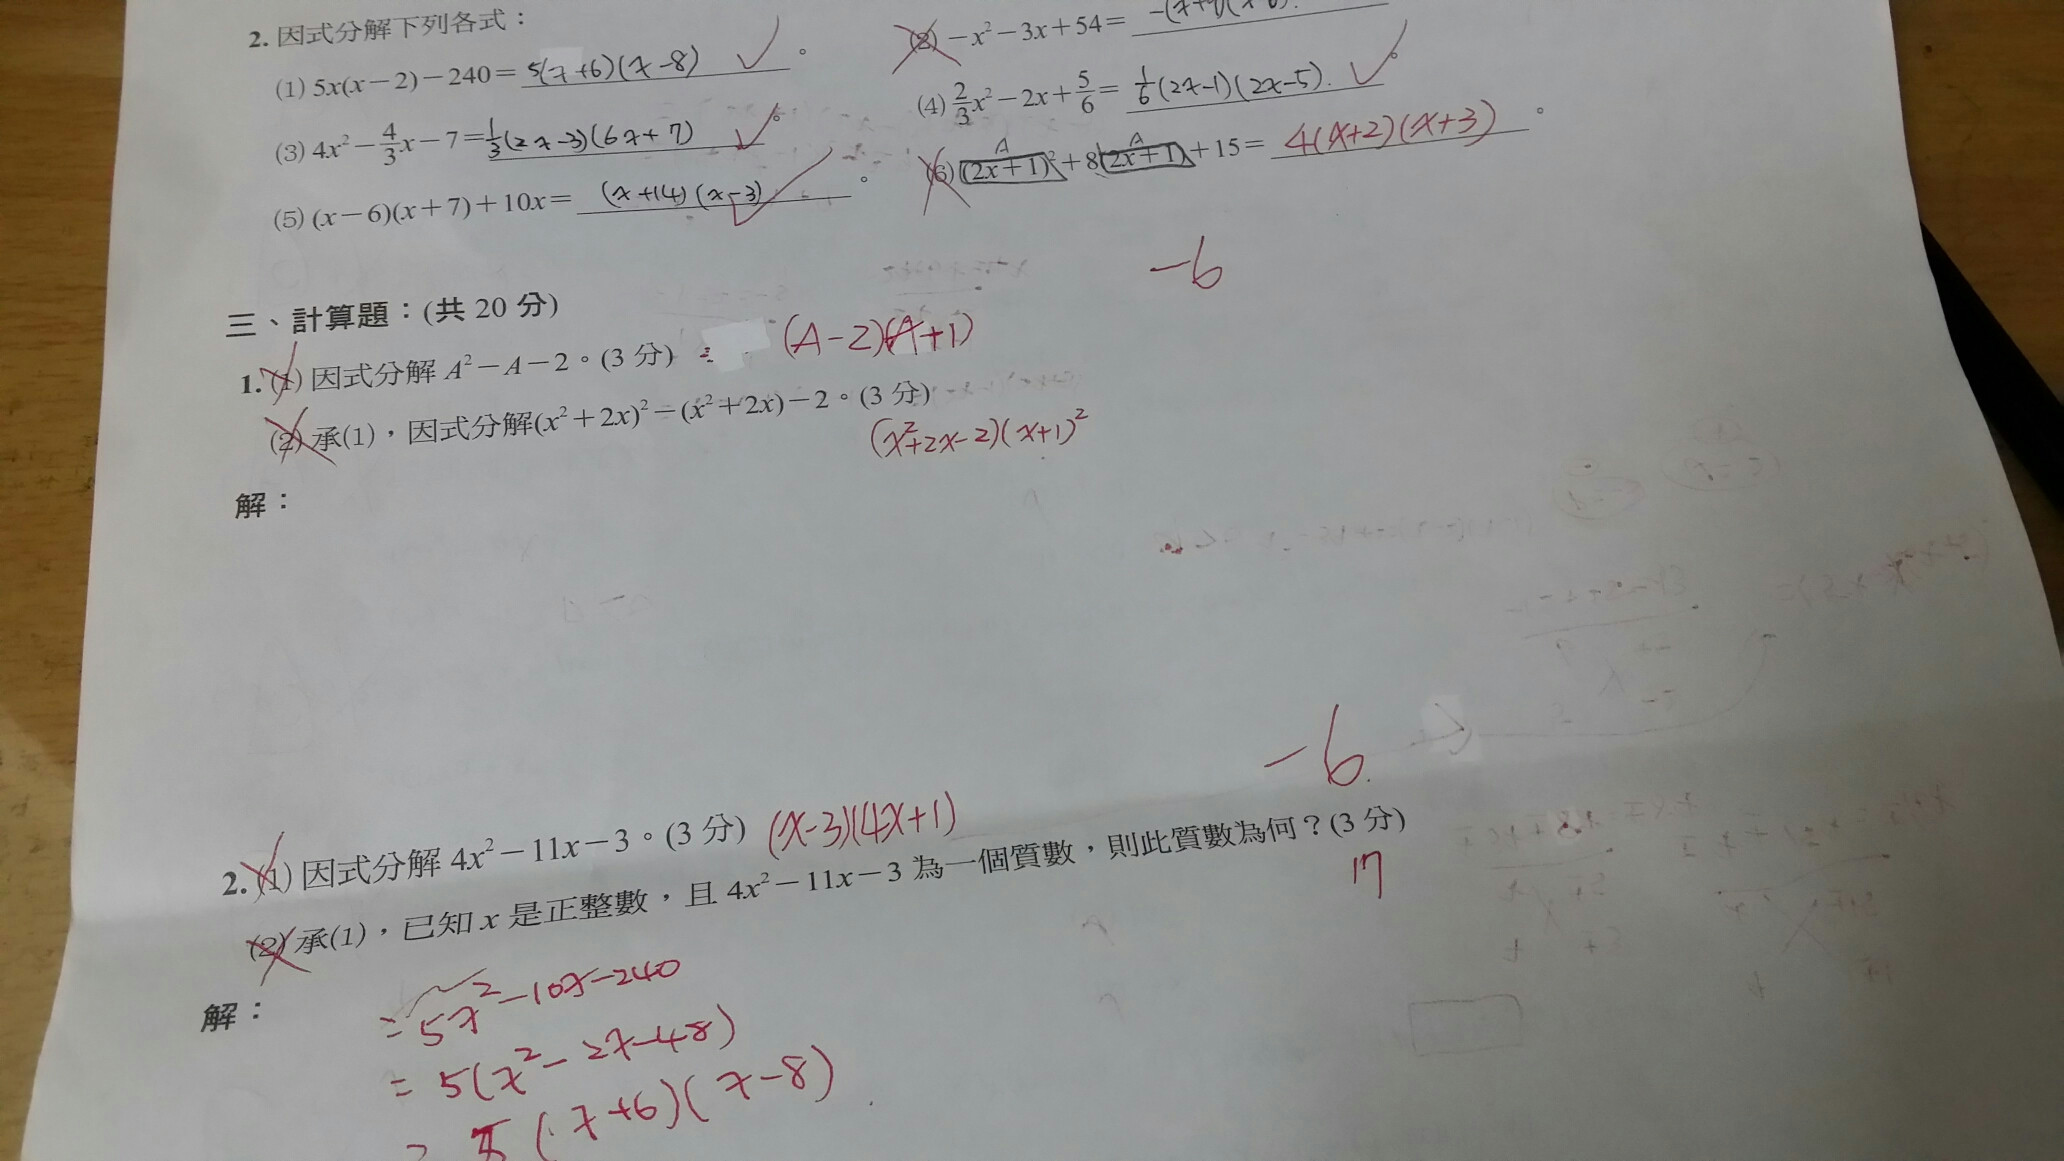 2. 因式分解下列各式：
(1) 5x(x－2)－240= 5(x+6)(x-8) 。
(2) －x²－3x＋54=
(3) 4x²－4/3x－7= 1/3(2x-3)(6x+7) 。
(4) 2/3x²－2x＋5/6= 1/6(2x-1)(2x-5). 。
(5) (x－6)(x＋7)＋10x= (x+14)(x-3) 。
A A
(6) (2x＋1)²＋8(2x＋1)＋15= 4(x+2)(x+3) 。
-6
三、計算題：(共 20 分)
1. (1) 因式分解 A²－A－2。(3 分) (A-2)(A+1)
(2) 承(1)，因式分解(x²＋2x)²－(x²＋2x)－2。(3 分)
(x²+2x-2)(x+1)²
解：
-6
2. (1) 因式分解 4x²－11x－3。(3 分) (x-3)(4x+1)
(2) 承(1)，已知 x 是正整數，且 4x²－11x－3 為一個質數，則此質數為何？(3 分)
17
解：
= 5x²-10x-240
= 5(x²-2x-48)
= 5(x+6)(x-8)